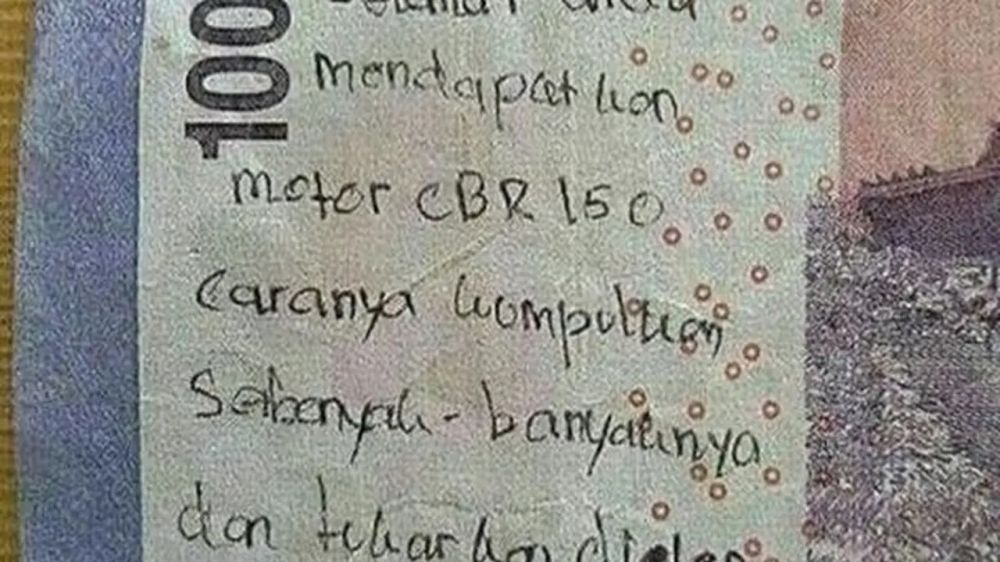 100
mendapatkan
motor CBR 150
Caranya kompulkan
Sebenyak-banyaknya
dan tukarkan